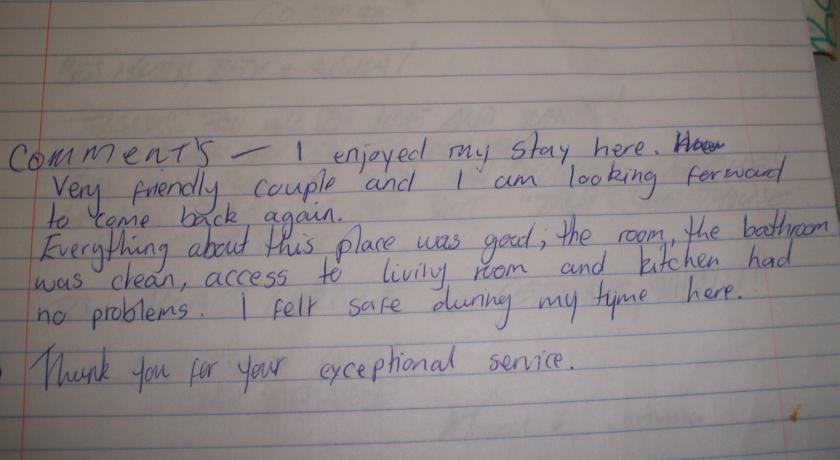 Comment's – I enjoyed my stay here.
Very friendly couple and I am looking forward
to come back again.
Everything about this place was good, the room, the bathroom
was clean, access to living room and kitchen had
no problems. I felt safe during my tyme here.
Thank you for your exceptional service.